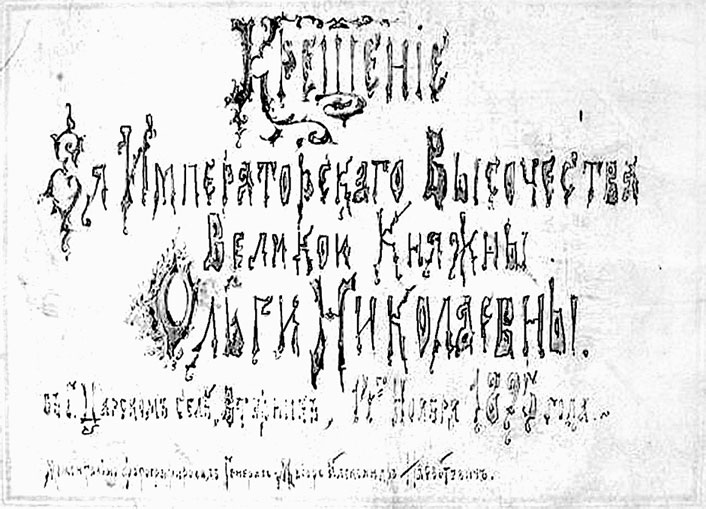 Крещеніе
Ея Императорскаго Высочества
Великой Княжны
Ольги Николаевны.
въ г. Царскомъ Селѣ, Вторникъ, 14го Ноября 1895 года.
фотографировалъ Генералъ-Маіоръ Александръ